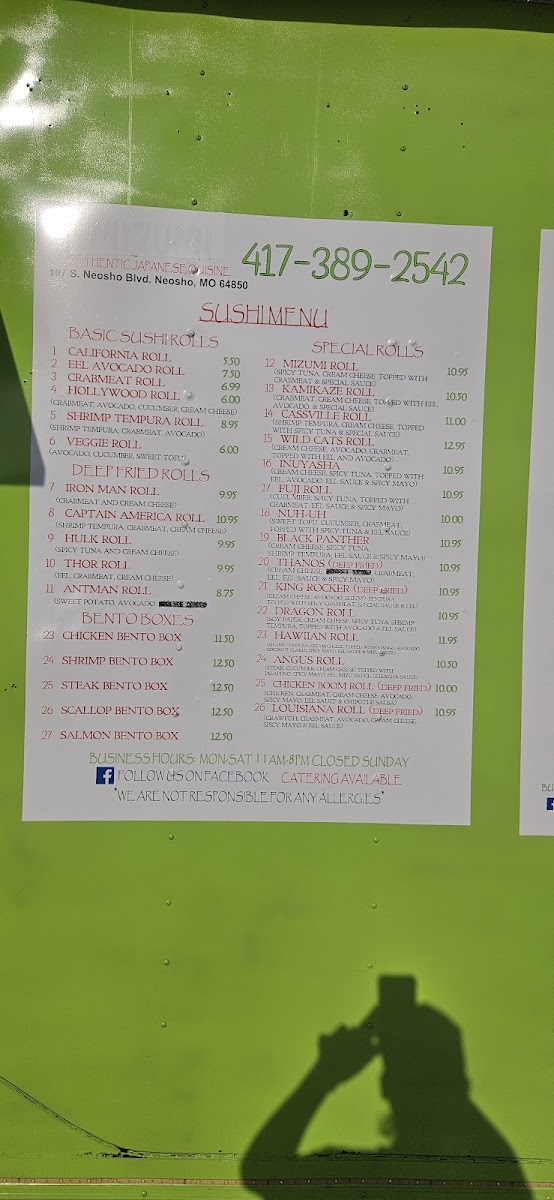 AUTHENTIC JAPANESE CUISINE
417-389-2542
107 S. Neosho Blvd. Neosho, MO 64850
SUSHI MENU
BASIC SUSHI ROLLS
1 CALIFORNIA ROLL 5.50
2 EEL AVOCADO ROLL 7.50
3 CRABMEAT ROLL 6.99
4 HOLLYWOOD ROLL 6.00
(CRABMEAT, AVOCADO, CUCUMBER, CREAM CHEESE)
5 SHRIMP TEMPURA ROLL 8.95
(SHRIMP TEMPURA, CRABMEAT, AVOCADO)
6 VEGGIE ROLL 6.00
(AVOCADO, CUCUMBER, SWEET TOFU)
DEEP FRIED ROLLS
7 IRON MAN ROLL 9.95
(CRABMEAT AND CREAM CHEESE)
8 CAPTAIN AMERICA ROLL 10.95
(SHRIMP TEMPURA, CRABMEAT, CREAM CHEESE)
9 HULK ROLL 9.95
(SPICY TUNA AND CREAM CHEESE)
10 THOR ROLL 9.95
(EEL, CRABMEAT, CREAM CHEESE)
11 ANTMAN ROLL 8.75
(SWEET POTATO, AVOCADO,
BENTO BOXES
23 CHICKEN BENTO BOX 11.50
24 SHRIMP BENTO BOX 12.50
25 STEAK BENTO BOX 12.50
26 SCALLOP BENTO BOX 12.50
27 SALMON BENTO BOX 12.50
SPECIAL ROLLS
12 MIZUMI ROLL 10.95
(SPICY TUNA, CREAM CHEESE, TOPPED WITH
CRABMEAT & SPECIAL SAUCE)
13 KAMIKAZE ROLL 10.50
(CRABMEAT, CREAM CHEESE, TOPPED WITH EEL,
AVOCADO & SPECIAL SAUCE)
14 CASSVILLE ROLL 11.00
(SHRIMP TEMPURA, CREAM CHEESE, TOPPED
WITH SPICY TUNA & SPECIAL SAUCE)
15 WILD CATS ROLL 12.95
(CREAM CHEESE, AVOCADO, CRABMEAT,
TOPPED WITH EEL AND AVOCADO)
16 INUYASHA 10.95
(CREAM CHEESE, SPICY TUNA, TOPPED WITH
EEL, AVOCADO, EEL SAUCE & SPICY MAYO)
17 FUJI ROLL 10.95
(CUCUMBER, SPICY TUNA, TOPPED WITH
CRABMEAT, EEL SAUCE & SPICY MAYO)
18 NUH-UH 10.00
(SWEET TOFU, CUCUMBER, CRABMEAT,
TOPPED WITH SPICY TUNA & EEL SAUCE)
19 BLACK PANTHER 10.95
(CREAM CHEESE, SPICY TUNA,
SHRIMP TEMPURA, EEL SAUCE & SPICY MAYO)
20 THANOS (DEEP FRIED) 10.95
(CREAM CHEESE, CRABMEAT,
EEL, EEL SAUCE & SPICY MAYO)
21 KING ROCKER (DEEP FRIED) 10.95
(CREAM CHEESE, AVOCADO, SHRIMP TEMPURA,
TOPPED WITH SPICY CRABMEAT, SPECIAL SAUCE & EEL)
22 DRAGON ROLL 10.95
(SOY PAPER, CREAM CHEESE, SPICY TUNA, SHRIMP
TEMPURA, TOPPED WITH AVOCADO & EEL SAUCE)
23 HAWIIAN ROLL 11.95
(SHRIMP TEMPURA, CREAM CHEESE, TOPPED WITH MANGO, AVOCADO,
COCONUT FLAKES, SPICY MAYO, EEL SAUCE
24 ANGUS ROLL 10.50
(STEAK, CUCUMBER, CREAM CHEESE, TOPPED WITH
JALAPENO, SPICY MAYO, EEL SAUCE, SRIRACHA SAUCE)
25 CHICKEN BOOM ROLL (DEEP FRIED) 10.00
(CHICKEN, CRABMEAT, CREAM CHEESE, AVOCADO,
SPICY MAYO, EEL SAUCE & CHIPOTLE SALSA)
26 LOUISIANA ROLL (DEEP FRIED) 10.95
(CRAWFISH, CRABMEAT, AVOCADO, CREAM CHEESE,
SPICY MAYO & EEL SAUCE)
BUSINESS HOURS: MON-SAT 11AM-8PM CLOSED SUNDAY
f FOLLOW US ON FACEBOOK CATERING AVAILABLE
*WE ARE NOT RESPONSIBLE FOR ANY ALLERGIES*
BU